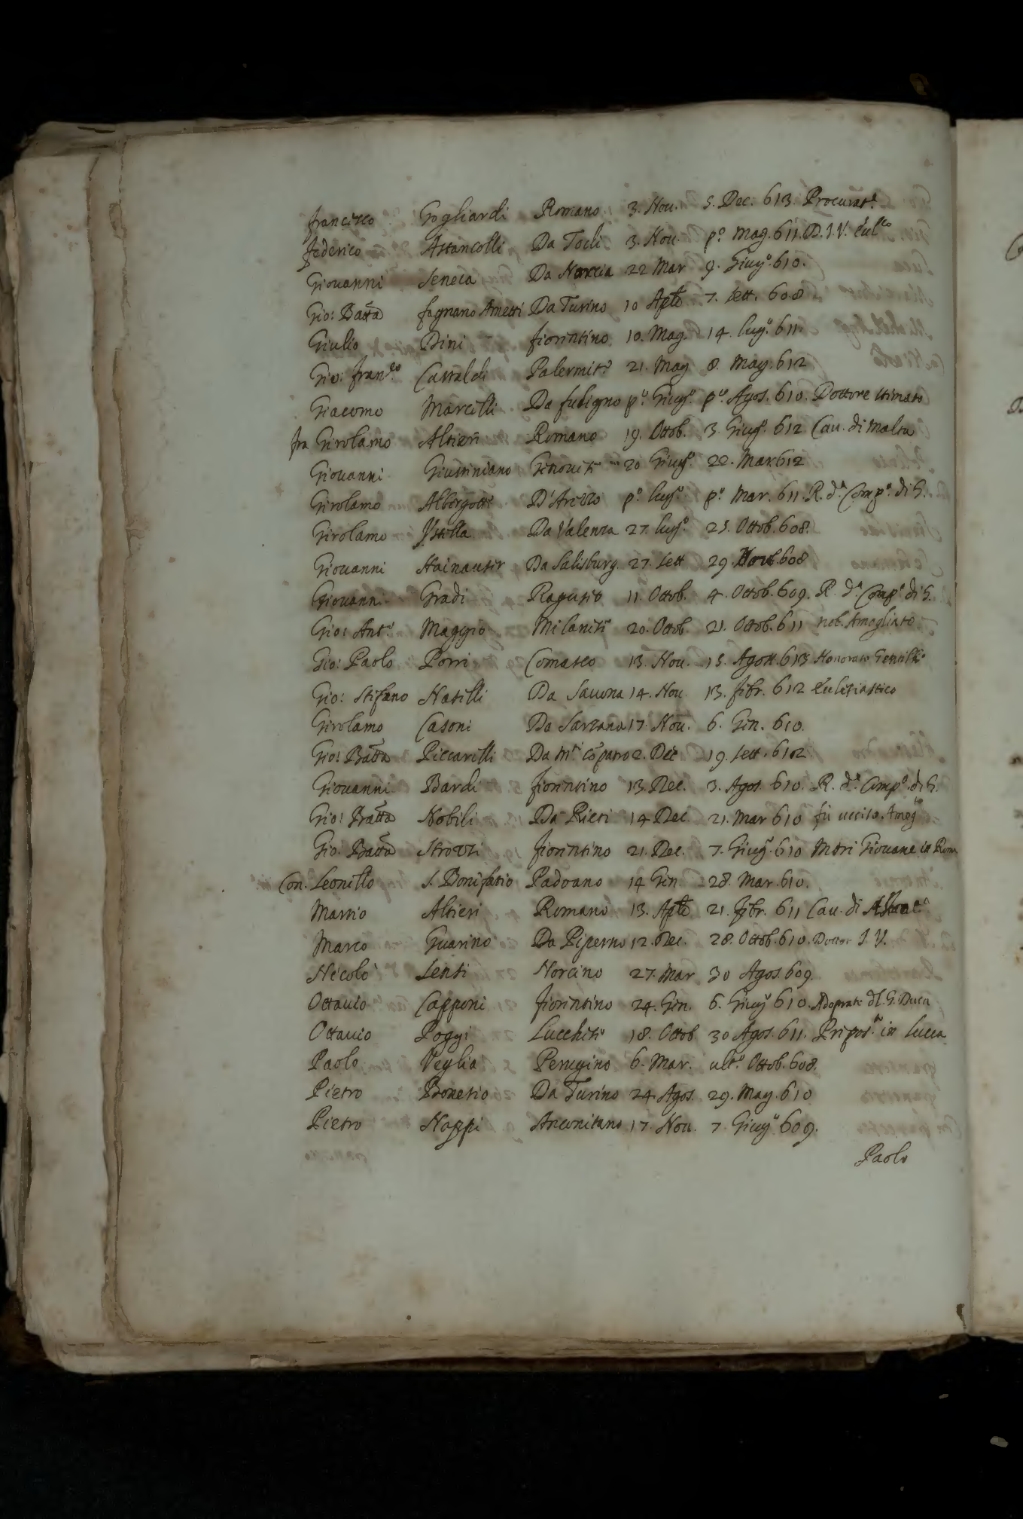 Francesco Gogliardi Romano 3. Nou. 5. Dec. 613 Procurat.e
Federico Astancolli Da Todi 3. Nou. p.o Mag. 611. D. I. V.
Giouanni Seneca Da Norcia 22 Mar 9. Giug.o 610.
Gio: Batta fagnano Ametti Da Turino 10 Aple 7. Sett. 608
Giulio Dini fiorentino 10. Mag. 14. lug.o 611
Gio. fran.co Castaldi Palermit.o 21. Mag 8. Mag. 612
Giacomo Marcelli Da fuligno p.o Giug.o p.o Agos. 610. Dottore stimato
fra Girolamo Altieri Romano 19. Ottob. 3 Giug.o 612 Cau. di Malta
Giouanni Giustiniano Genouese 20. Giug.o 22. Mar 612
Girolamo Albergotti D'Arezzo p.o lug.o p.o Mar. 611 R. d.a Comp.a di G.
Girolamo Da Valenza 27. lug.o 25. Ottob. 608.
Giouanni Da Salisburg 27. Sett 29 608
Giouanni Gradi Raguseo 11. Ottob. 4. Ottob. 609. R. d.a Comp.a di G.
Gio: Ant.o Maggio Milanese 20. Ottob. 21. Ottob. 611 nob. Amogliato
Gio: Paolo Porri Comasco 13. Nou. 15. Agost 613 Honorato
Gio: Stefano Naselli Da Sauona 14. Nou 13. febr. 612 Ecclesiastico
Girolamo Casoni Da Sarzana 17. Nou. 6. Gen. 610
Gio: Batta Piccarelli Da 2. Dec 19. Sett. 612
Giouanni Bardi fiorentino 13. Dec. 3. Agos 610 R. d.a Comp.a di G.
Gio: Batta Nobili Da Rieti 14 Dec. 21. Mar 610 fu ucciso. Amog.to
Gio. Batta Strozzi fiorentino 21. Dec. 7. Giug.o 610 Mori Giouane in Roma
Con. Leonello S. Bonifatio Padoano 14 Gen 28. Mar 610.
Marzio Altieri Romano 13. Aple 21. febr. 611 Cau. di
Marco Guarino Da Piperno 12. Dec. 28. Ottob. 610. Dottor I. V.
Nicolo Lenti Norcino 27. Mar 30 Agos 609
Ottauio Capponi fiorentino 24. Gen. 6. Giug.o 610 Adoprato dl G. Duca
Ottauio Poggi Lucchese 18. Ottob 30 Agos. 611. in Lucca
Paolo Veglia Perugino 6. Mar. ult.o Ottob. 608.
Pietro Bonesio Da Turino 24. Agos. 29. Mag. 610
Pietro Nappi Anconitano 17. Nou. 7. Giug.o 609.
Paolo